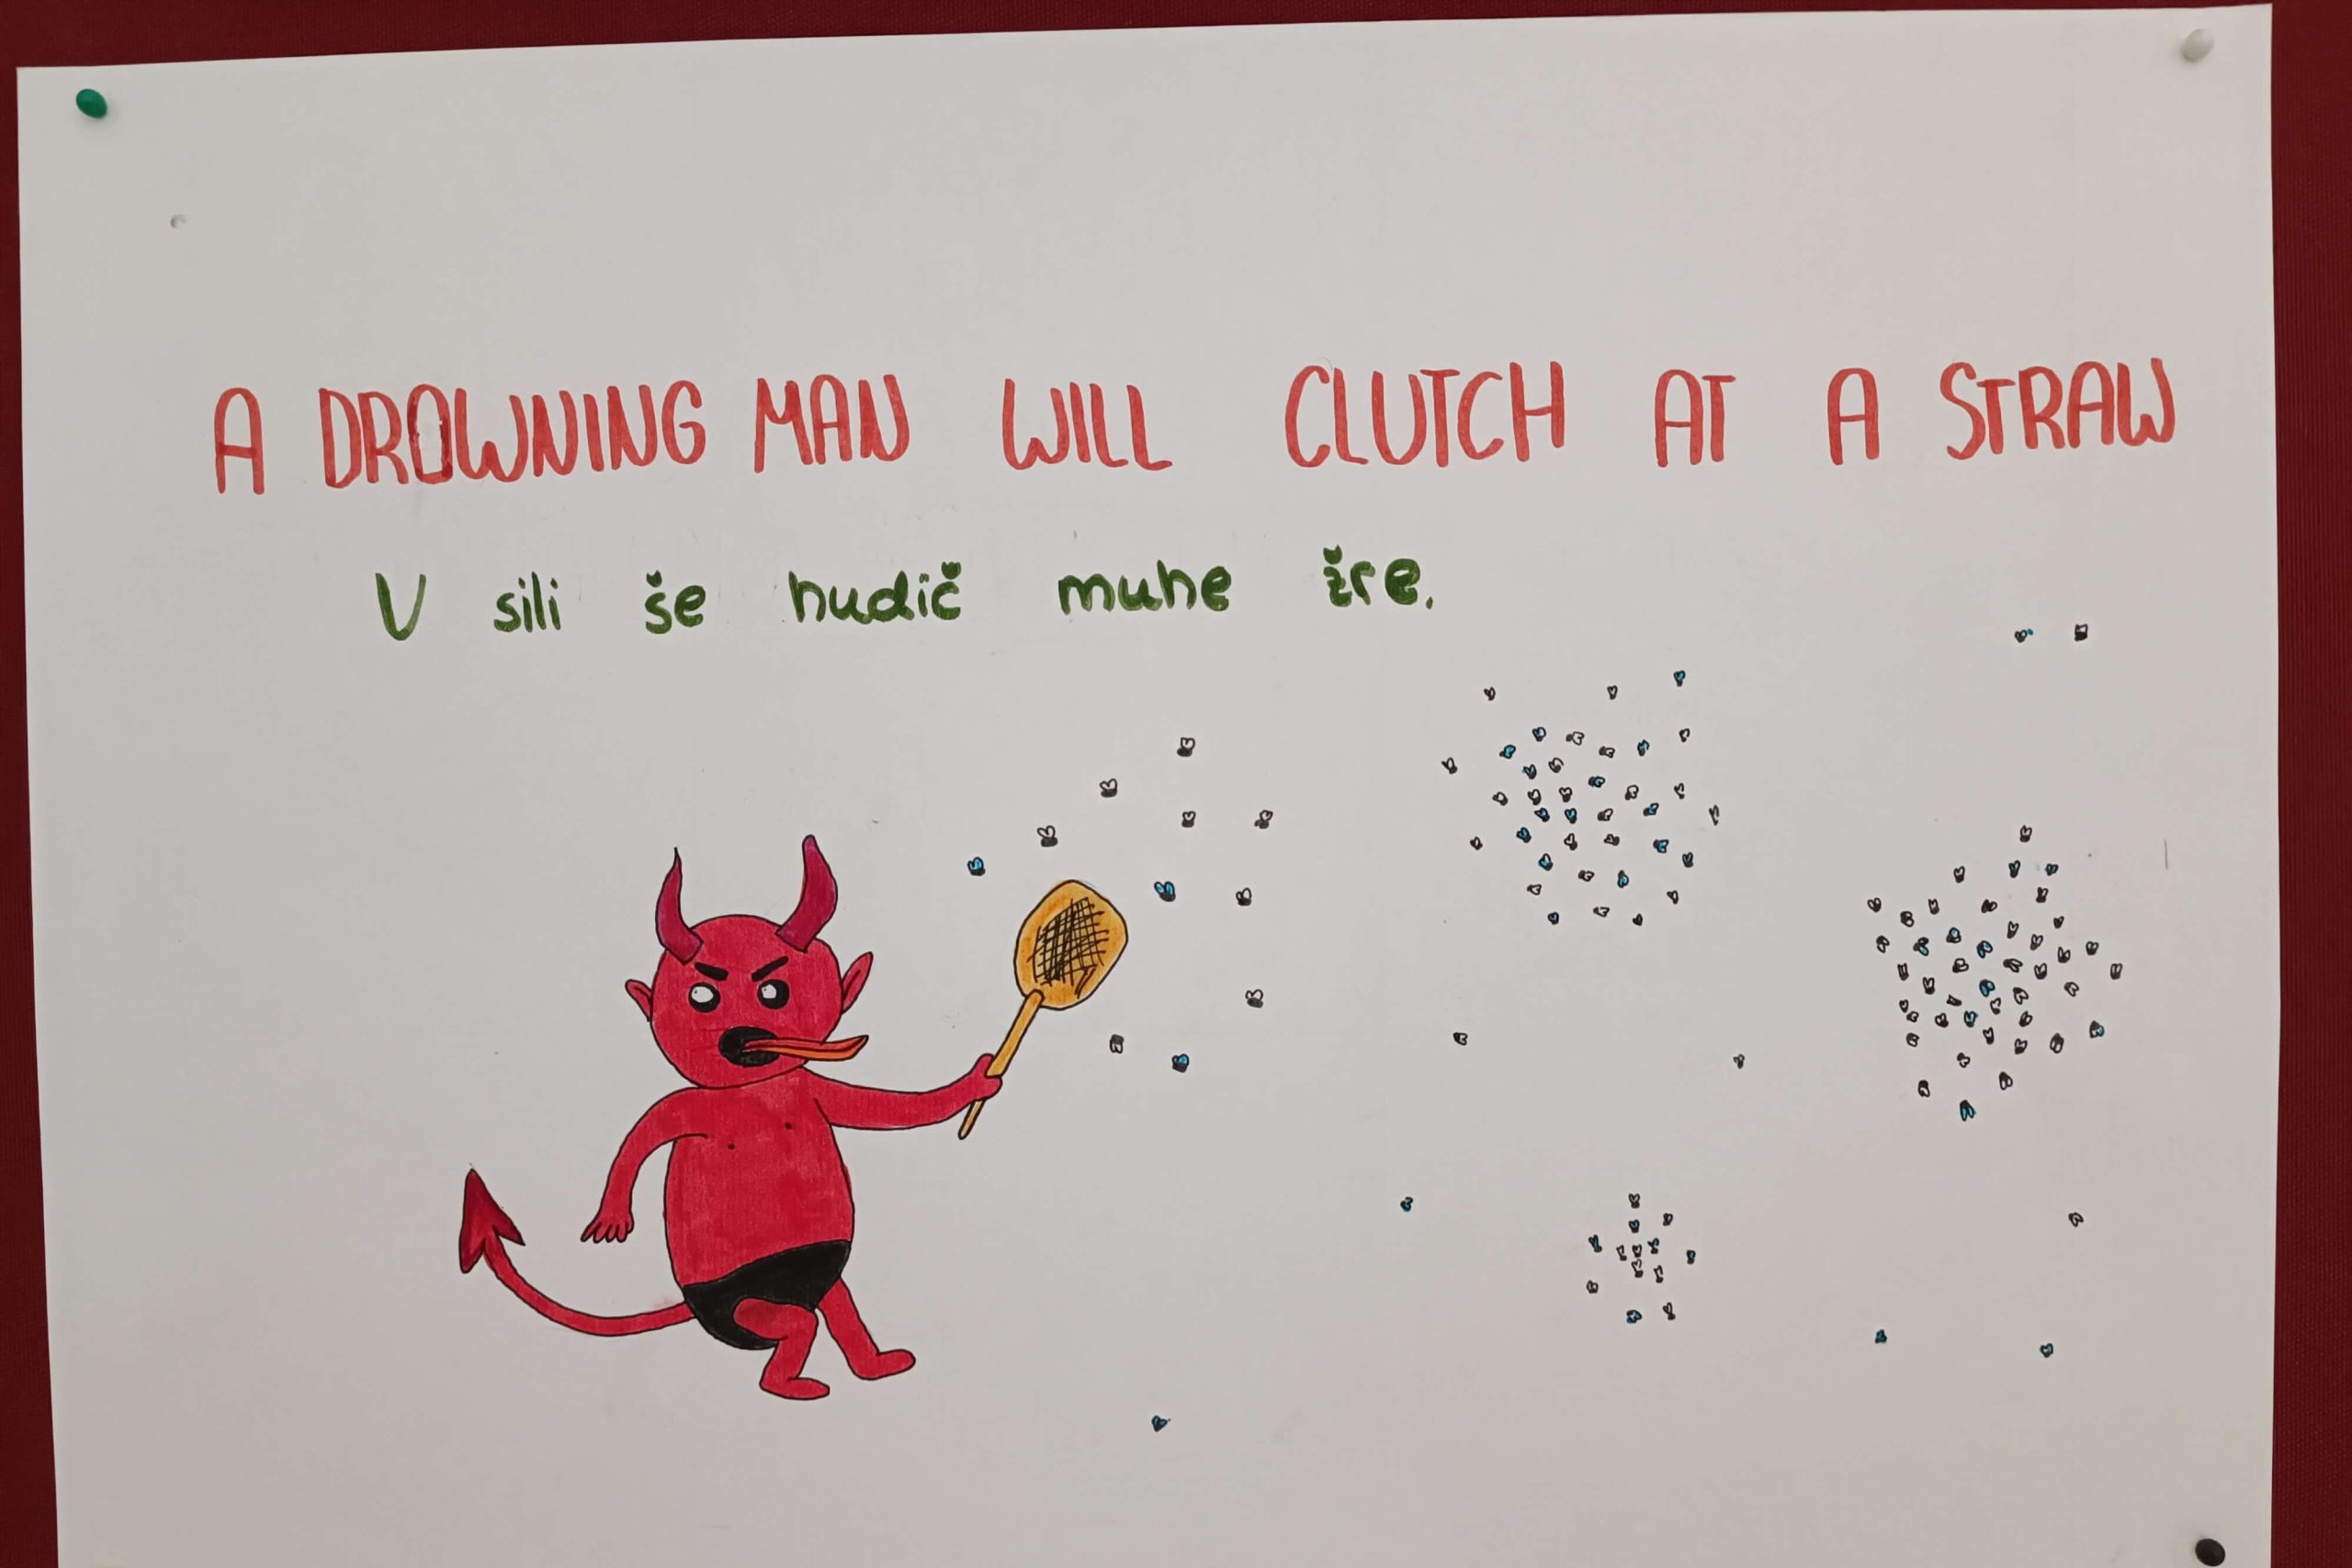 A DROWNING MAN WILL CLUTCH AT A STRAW
V sili še hudič muhe žre.